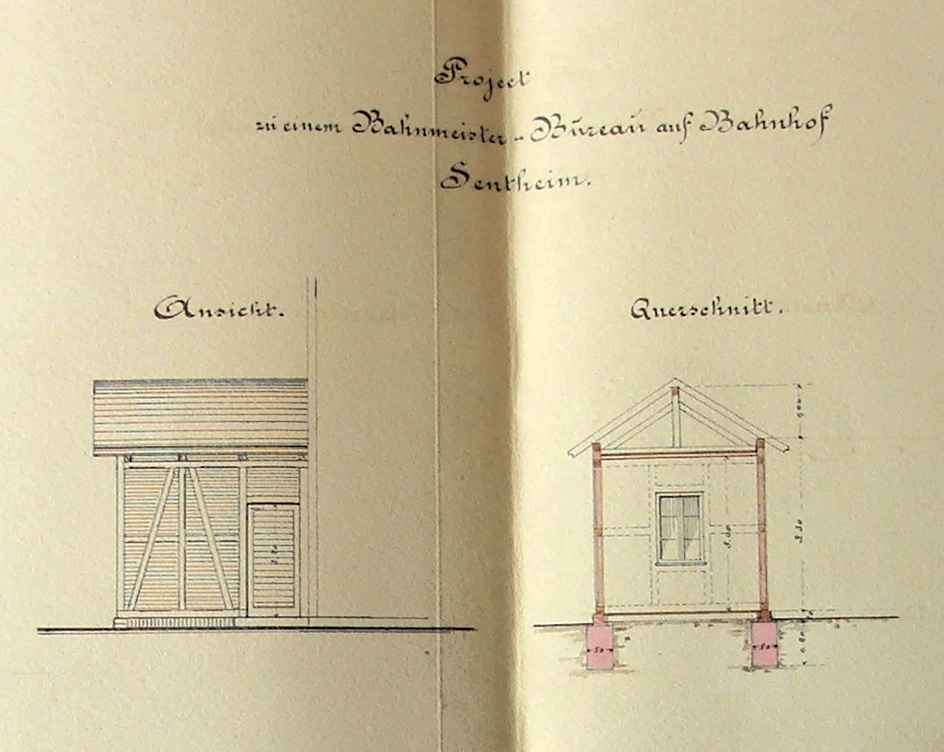 Project
zu einem Bahnmeister-Büreaü aüf Bahnhof
Sentheim.
Ansicht.
Querschnitt.
3.00
50
50
0.80